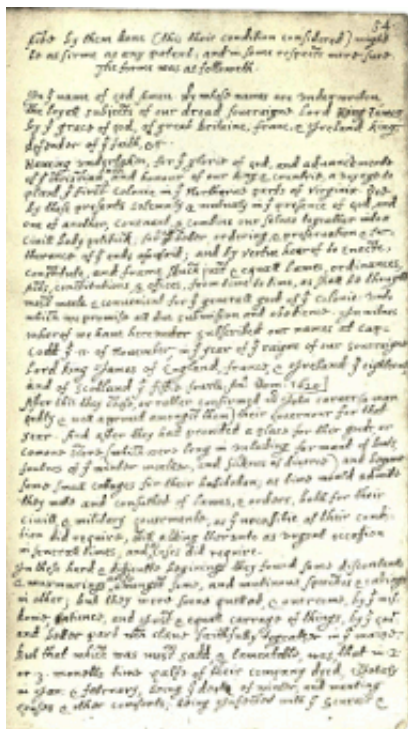 54
by them done (this their condition considered) might
be as firme as any patent; and in some respects more sure.
The forme was as followeth.
In yͤ name of god, Amen. We whose names are underwriten,
the loyall subjects of our dread soveraigne Lord King James
by yͤ grace of god, of great Britaine, franc, & Ireland king,
defender of yͤ faith, &c
Haveing undertaken, for yͤ glorie of god, and advancemente
of yͤ christian and honour of our king & countrie, a voyage to
plant yͤ first colonie in yͤ Northerne parts of Virginia. Doe
by these presents solemnly & mutualy in yͤ presence of god, and
one of another, covenant, & combine our selves togeather into a
civill body politick; for our better ordering, & preservation & fur-
therance of yͤ ends aforesaid; and by vertue hearof to enacte,
constitute, and frame shuch just & equall lawes, ordinances,
Acts, constitutions, & offices, from time to time, as shall be thought
most meete & convenient for yͤ generall good of yͤ colonie: unto
which we promise all due submission and obedience. In witnes
wherof we have hereunder subscribed our names at Cap-
Codd yͤ 11 of November, in yͤ year of yͤ raigne of our soveraigne
Lord king James of England, france, & Ireland yͤ eighteenth
and of Scotland yͤ fiftie fourth. Ano: Dom. 1620]
After this they chose, or rather confirmed mr John Carver (a man
godly & well approved amongst them) their Governour for that
year. And after they had provided a place for their goods, or
comone store, (which were long in unlading for want of boats,
foulnes of yͤ winter weather, and sicknes of diverce) and begune
some small cottages for their habitation; as time would admitte
they mette and consulted of lawes, & orders, both for their
civill, & military Govermente, as yͤ necessitie of their condi-
tion did require, still adding therunto as urgent occasion
in severall times, and cases did require.
In these hard & difficulte beginings they found some discontents
& murmurings amongst some, and mutinous speeches & cariags
in other; but they were soone quelled, & overcome, by yͤ wis-
dome, patience, and just & equall carrage of things, by yͤ Govr
and better part which clave faithfully togeather in yͤ maine.
but that which was most sadd, & lamentable, was, that in 2
or 3 moneths time halfe of their company dyed, espetialy
in Jan: & february, being yͤ depth of winter, and wanting
houses & other comforts; being infected with yͤ scurvie &